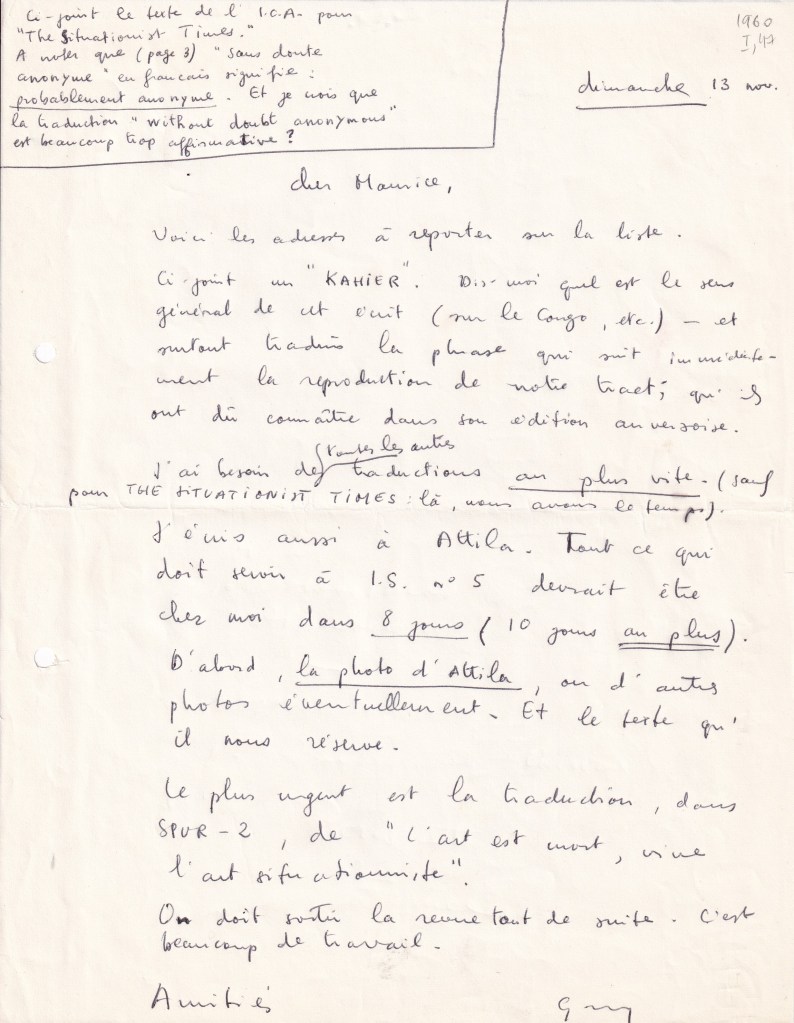 Ci-joint le texte de l' I.C.A. pour
"The Situationist Times."
A noter que (page 3) "sans doute
anonyme" en francais signifie :
probablement anonyme. Et je crois que
la traduction "without doubt anonymous"
est beaucoup trop affirmative ?
1960
I, 47
dimanche 13 nov.
cher Maurice,
Voici les adresses à reporter sur la liste.
Ci-joint un "KAHIER". Dis-moi quel est le sens
général de cet écrit (sur le Congo, etc.) — et
surtout traduis la phrase qui suit immédiate-
ment la reproduction de notre tract; qu'ils
ont dû connaître dans son édition anversoise.
toutes les autres
J'ai besoin des traductions au plus vite. (sauf
pour THE SITUATIONIST TIMES : là, nous avons le temps).
J'écris aussi à Attila. Tout ce qui
doit servir à I.S. n° 5 devrait être
chez moi dans 8 jours (10 jours au plus).
D'abord, la photo d'Attila, ou d'autres
photos éventuellement. Et le texte qu'
il nous réserve.
Le plus urgent est la traduction, dans
SPUR-2, de "L'art est mort, vive
l'art situationniste".
On doit sortir la revue tout de suite. C'est
beaucoup de travail.
Amitiés
Guy